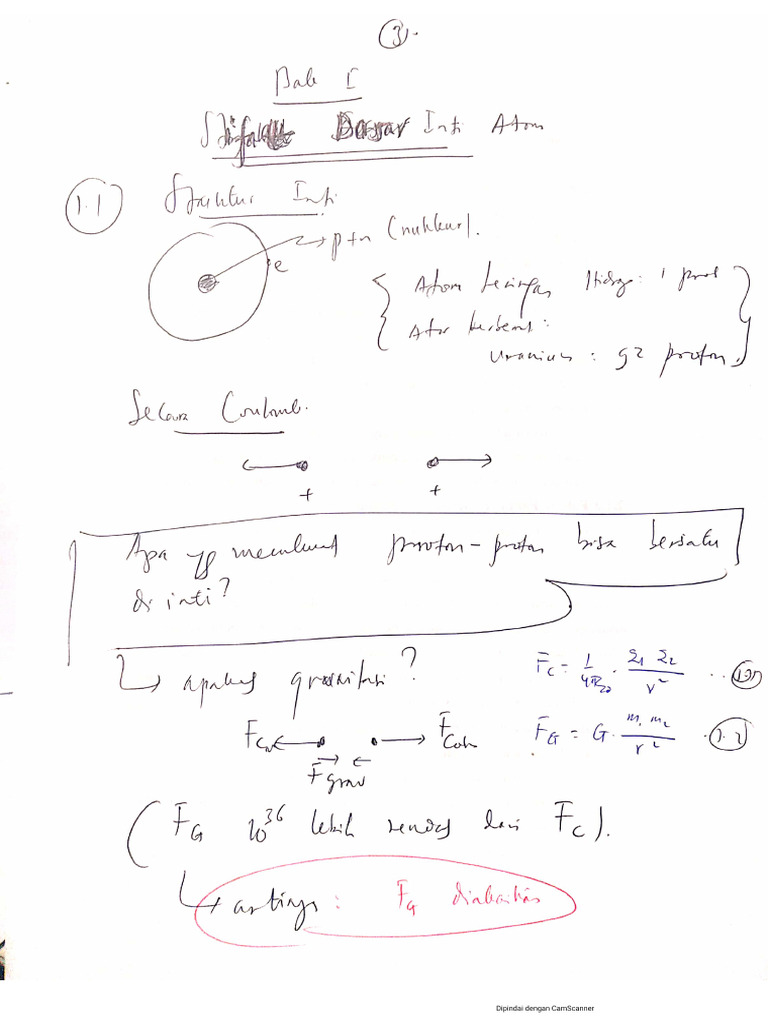 (3).
Bab I
Sifat Dasar Inti Atom
1.1 Struktur Inti
p+n (nukleus).
e
Atom teringan Hidrog: 1 prot
Atom terberat:
Uranium: 92 proton
Secara Coulomb.
+ +
Apa yg membuat proton-proton bisa bersatu
di inti?
↳ apakah gravitasi?
F_C = 1/4πε₀ · q1 q2 / r² ..
F_Cou F_Cou
F_G = G · m1 m2 / r² . (1.2)
F grav
(F_G 10^36 lebih rendah dari F_C).
↳ artinya: F_G diabaikan
Dipindai dengan CamScanner